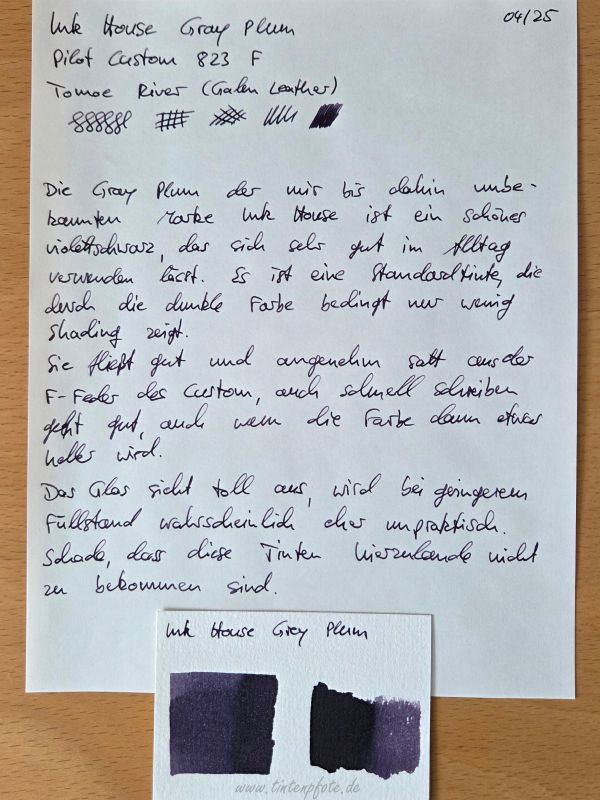 04/25
Ink House Gray Plum
Pilot Custom 823 F
Tomoe River (Galen Leather)
Die Gray Plum der mir bis dahin unbe-
kannten Marke Ink House ist ein schönes
violettschwarz, das sich sehr gut im Alltag
verwenden lässt. Es ist eine Standardtinte, die
durch die dunkle Farbe bedingt nur wenig
Shading zeigt.
Sie fließt gut und angenehm satt aus der
F-Feder des Custom, auch schnell schreiben
geht gut, auch wenn die Farbe dann etwas
heller wird.
Das Glas sieht toll aus, wird bei geringerem
Füllstand wahrscheinlich eher unpraktisch.
Schade, dass diese Tinten hierzulande nicht
zu bekommen sind.
Ink House Grey Plum
www.tintenpfote.de